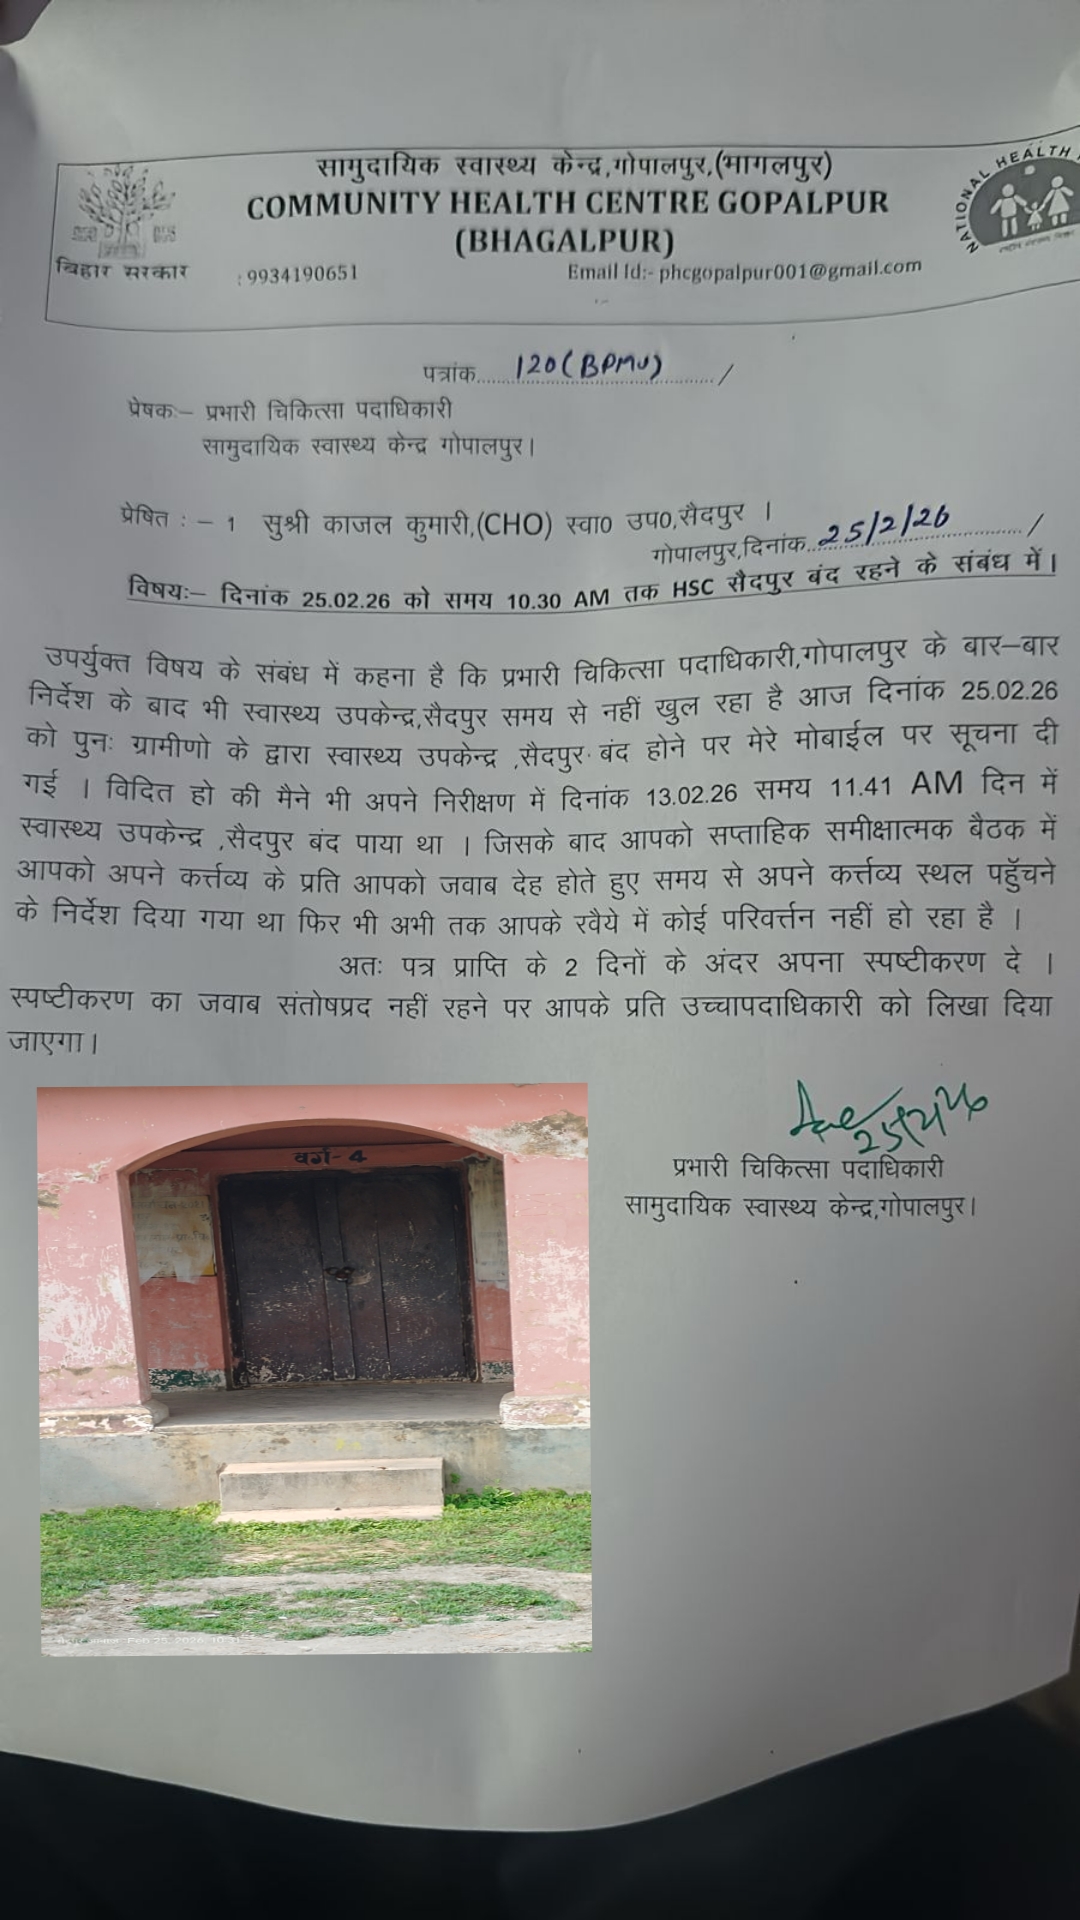 सामुदायिक स्वास्थ्य केन्द्र,गोपालपुर,(भागलपुर)
COMMUNITY HEALTH CENTRE GOPALPUR
(BHAGALPUR)
बिहार सरकार
: 9934190651
Email Id:- phcgopalpur001@gmail.com
NATIONAL HEALTH
पत्रांक..... 120(BPMU) ...../
प्रेषक:– प्रभारी चिकित्सा पदाधिकारी
सामुदायिक स्वास्थ्य केन्द्र गोपालपुर।
प्रेषित : – 1 सुश्री काजल कुमारी,(CHO) स्वा0 उप0,सैदपुर ।
गोपालपुर,दिनांक...25/2/26....../
विषय:– दिनांक 25.02.26 को समय 10.30 AM तक HSC सैदपुर बंद रहने के संबंध में।
उपर्युक्त विषय के संबंध में कहना है कि प्रभारी चिकित्सा पदाधिकारी,गोपालपुर के बार–बार
निर्देश के बाद भी स्वास्थ्य उपकेन्द्र,सैदपुर समय से नहीं खुल रहा है आज दिनांक 25.02.26
को पुनः ग्रामीणो के द्वारा स्वास्थ्य उपकेन्द्र ,सैदपुर बंद होने पर मेरे मोबाईल पर सूचना दी
गई । विदित हो की मैने भी अपने निरीक्षण में दिनांक 13.02.26 समय 11.41 AM दिन में
स्वास्थ्य उपकेन्द्र ,सैदपुर बंद पाया था । जिसके बाद आपको सप्ताहिक समीक्षात्मक बैठक में
आपको अपने कर्त्तव्य के प्रति आपको जवाब देह होते हुए समय से अपने कर्त्तव्य स्थल पहुॅचने
के निर्देश दिया गया था फिर भी अभी तक आपके रवैये में कोई परिवर्त्तन नहीं हो रहा है ।
अतः पत्र प्राप्ति के 2 दिनों के अंदर अपना स्पष्टीकरण दे ।
स्पष्टीकरण का जवाब संतोषप्रद नहीं रहने पर आपके प्रति उच्चापदाधिकारी को लिखा दिया
जाएगा।
25/2/26
प्रभारी चिकित्सा पदाधिकारी
सामुदायिक स्वास्थ्य केन्द्र,गोपालपुर।
वर्ग- 4
Feb 25, 2026, 10:31